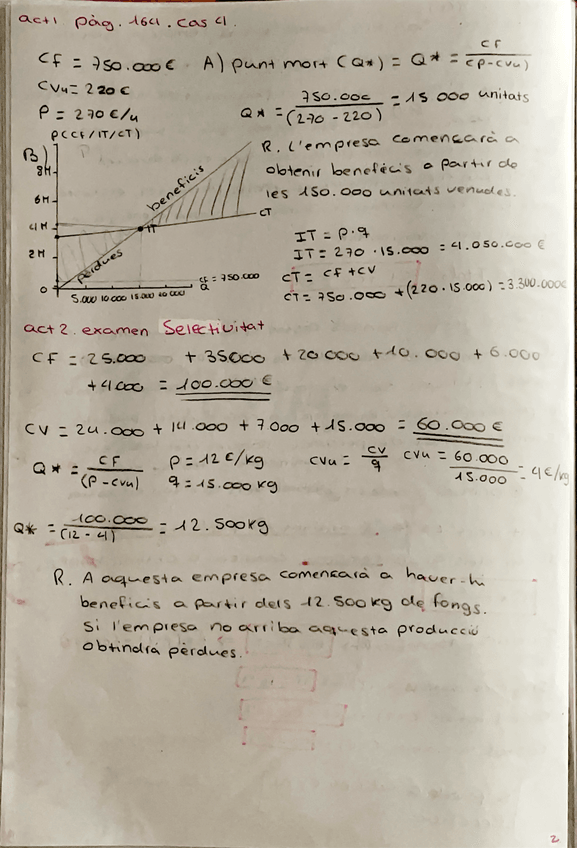 act1 pàg. 164. cas 4.
CF = 750.000 € A) punt mort (Q*) = Q* = CF / (P - CVu)
CVu = 220 €
P = 270 €/u
Q* = 750.000 / (270 - 220) = 15 000 unitats
P(CF/IT/CT)
B)
R. L'empresa començarà a
obtenir beneficis a partir de
les 150.000 unitats venudes.
8M
6M
4M
2M
0
beneficis
pèrdues
IT
CT
CF = 750.000
Q
5.000 10.000 15.000 20.000
IT = P · q
IT = 270 · 15.000 = 4.050.000 €
CT = CF + CV
CT = 750.000 + (220 · 15.000) = 3.300.000€
act 2. examen Selectivitat
CF = 25.000 + 35000 + 20 000 + 10.000 + 6.000
+ 4.000 = 100.000 €
CV = 24.000 + 14.000 + 7000 + 15.000 = 60.000 €
Q* = CF / (P - CVu) P = 12 €/kg CVu = CV / q CVu = 60.000 / 15.000 = 4 €/kg
q = 15.000 kg
Q* = 100.000 / (12 - 4) = 12.500 kg
R. A aquesta empresa començarà a haver-hi
beneficis a partir dels 12.500 kg de fongs.
Si l'empresa no arriba aquesta producció
obtindrà pèrdues.
2